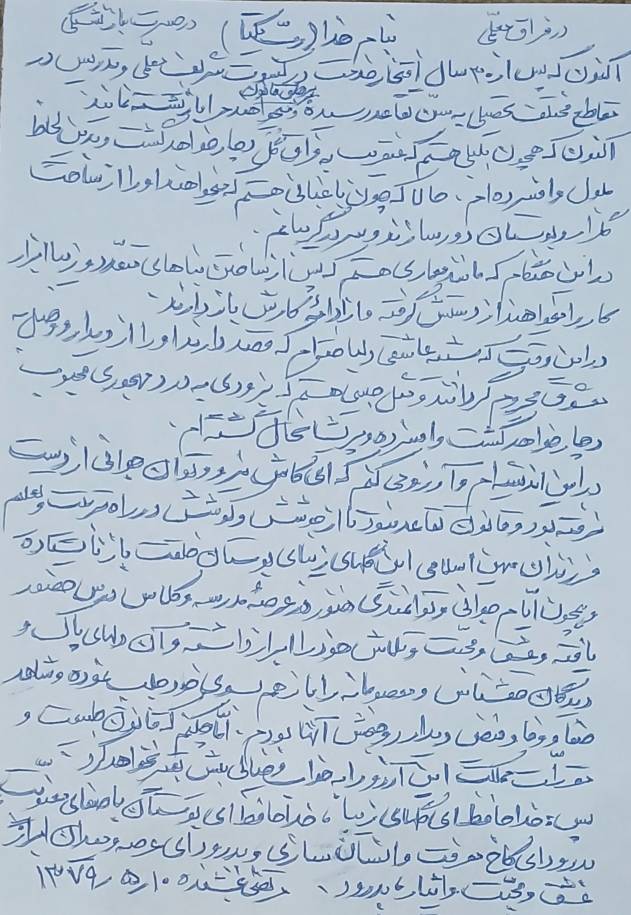 در فراق معلمی بنام خدا (رب یکتا) در حسرت بازنشستگی
اکنون که پس از ۳۰ سال افتخار خدمت در کسوت شریف معلمی و تدریس در
مقاطع مختلف تحصیلی به سن تقاعد رسیده و برطبق قانون میخواهند مرا بازنشسته نمایند
اکنون که همچون بلبلی هستم که عنقریب به فراق گل دچار خواهد گشت و بدین لحاظ
ملول و افسرده‌ام. حالا که چون باغبانی هستم که میخواهند او را از ساحت
گلزار و بوستان دور سازند و سر در گریبانم.
در این هنگام که مانند معماری هستم که پس از ساختن بناهای متعدد و زیبا ابزار
کار را میخواهند از دستش گرفته و از ادامه کارش باز دارند.
در این وقت که بسته عاشقی دلباخته‌ام که قصد دارند او را از دیدار و وصل به
معشوق محروم گردانند و مثل حبیبی هستم که بزودی به درد مهجوری محبوب
دچار خواهد گشت و افسرده و پریشانحال گشته‌ام.
در این اندیشه‌ام و آرزو می کنم که ای کاش نیرو و توان جوانی از دست
نرفته بود و قانون تقاعد نبود تا از جوشش و کوشش در راه تربیت و تعلیم
فرزندان میهن اسلامی این گلهای زیبای بوستان خلقت باز نایستاده
و همچون ایام جوانی و توانمندی هنوز در عرصه مدرسه و کلاس درس حضور
یافته و عشق و محبت و تلاش خود را ابراز داشته و آن دلهای پاک و
دیدگان حقشناس و معصومانه را باز هم بسوی خود جلب نموده و شاهد
صفا و وفا و فیض دیدار روحبخش آنها بودم. اما چکنم که قانون طبیعت و
مقررات مملکت این آرزو را به خواب و خیالی بیش تعبیر نخواهد کرد.
پس: خداحافظ ای گلهای زیبا، خداحافظ ای بوستان باصفای معنویت
بدرود ای کاخ معرفت و انسان سازی و بدرود ای عرصه و میدان ابراز
عشق و محبت و ایثار، بدرود. ۱۳۷۹/۵/۱۰